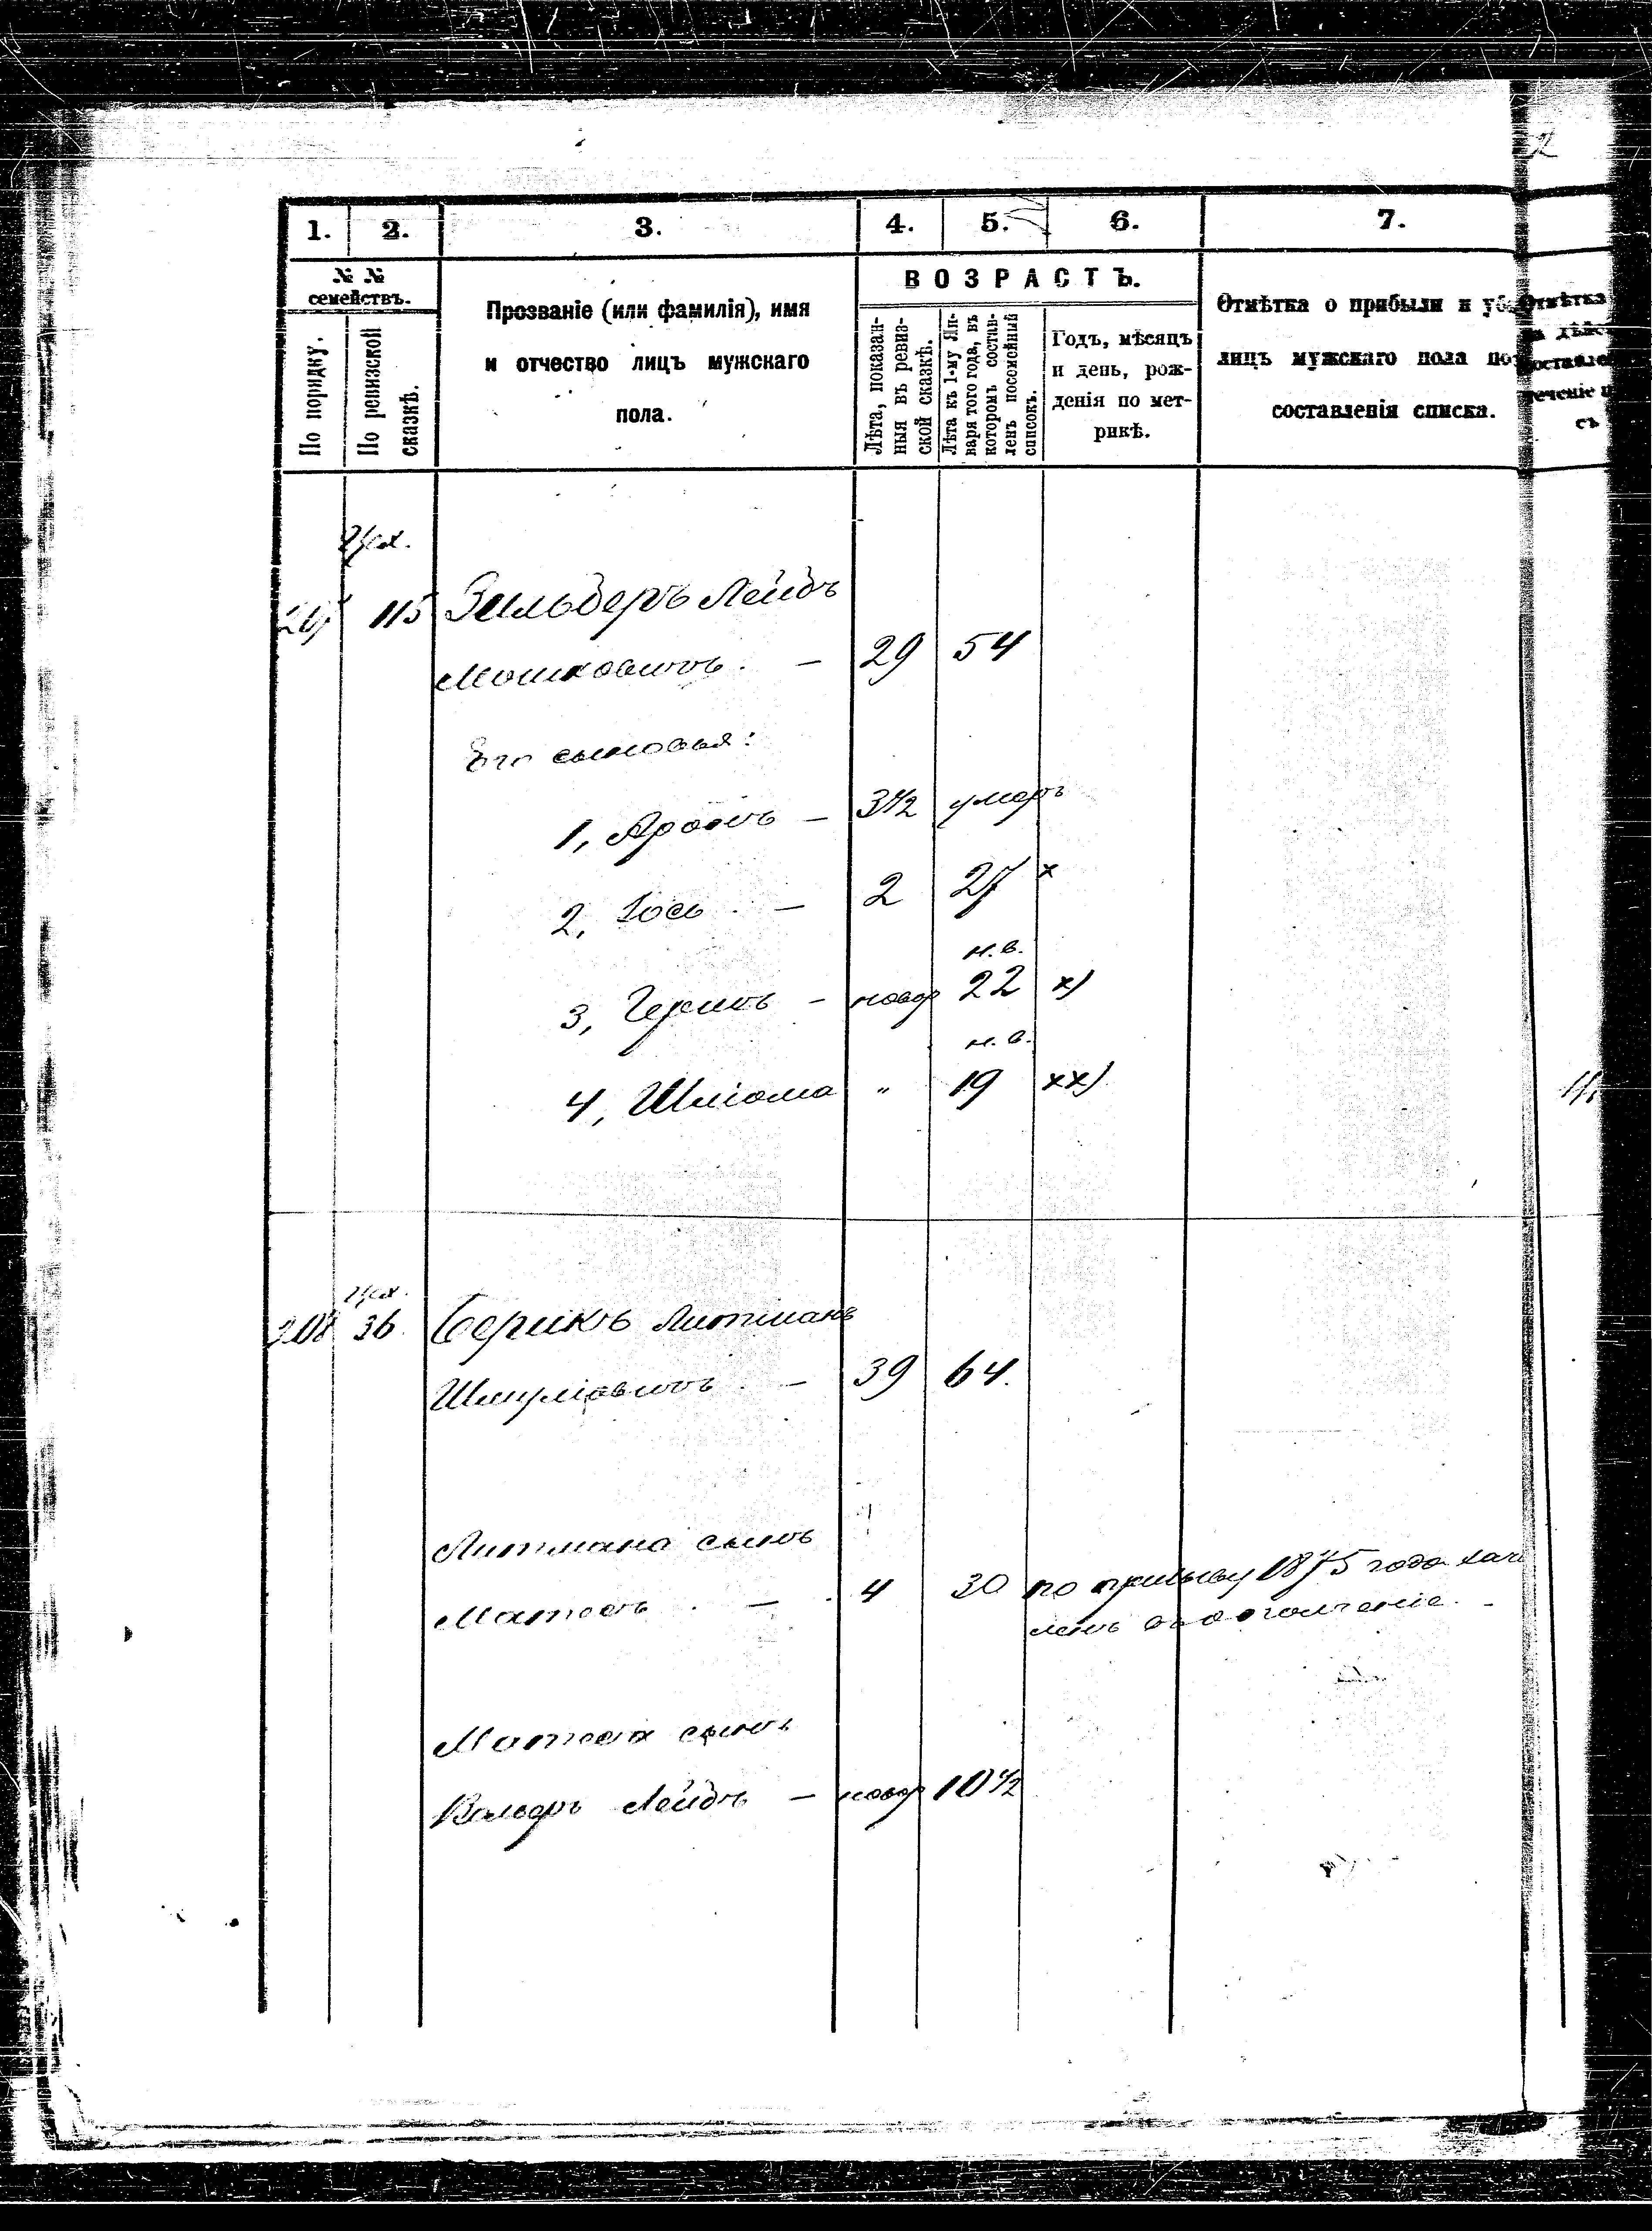 2
1. 2. 3. 4. 5. 6. 7.
№ №
семействъ.
По порядку.
По ревизской
сказкѣ.
Прозваніе (или фамилія), имя
и отчество лицъ мужскаго
пола.
ВОЗРАСТЪ.
Лѣта, показан-
ныя въ ревиз-
ской сказкѣ.
Лѣта къ 1-му Ян-
варя того года, въ
которомъ состав-
ленъ посемейный
списокъ.
Годъ, мѣсяцъ
и день, рож-
денія по мет-
рикѣ.
Отмѣтка о прибыли и уб
лицъ мужскаго пола по
составленія списка.
Отмѣтка
115 Зильберъ Лейбъ
Мошковичъ. — 29 54
Его сыновья:
1, Аронъ — 3½ умеръ
2, Іось — 2 27 х
н. в.
3, — новор 22 х)
н. в.
4, Шліома " 19 хх)
208 36 Берикъ Литманъ
Шмуліовичъ — 39 64.
Литмана сынъ
— 4 30 по призыву 1875 года зач
ленъ въ ополченіе. -
сынъ
Лейбъ — новор 10½